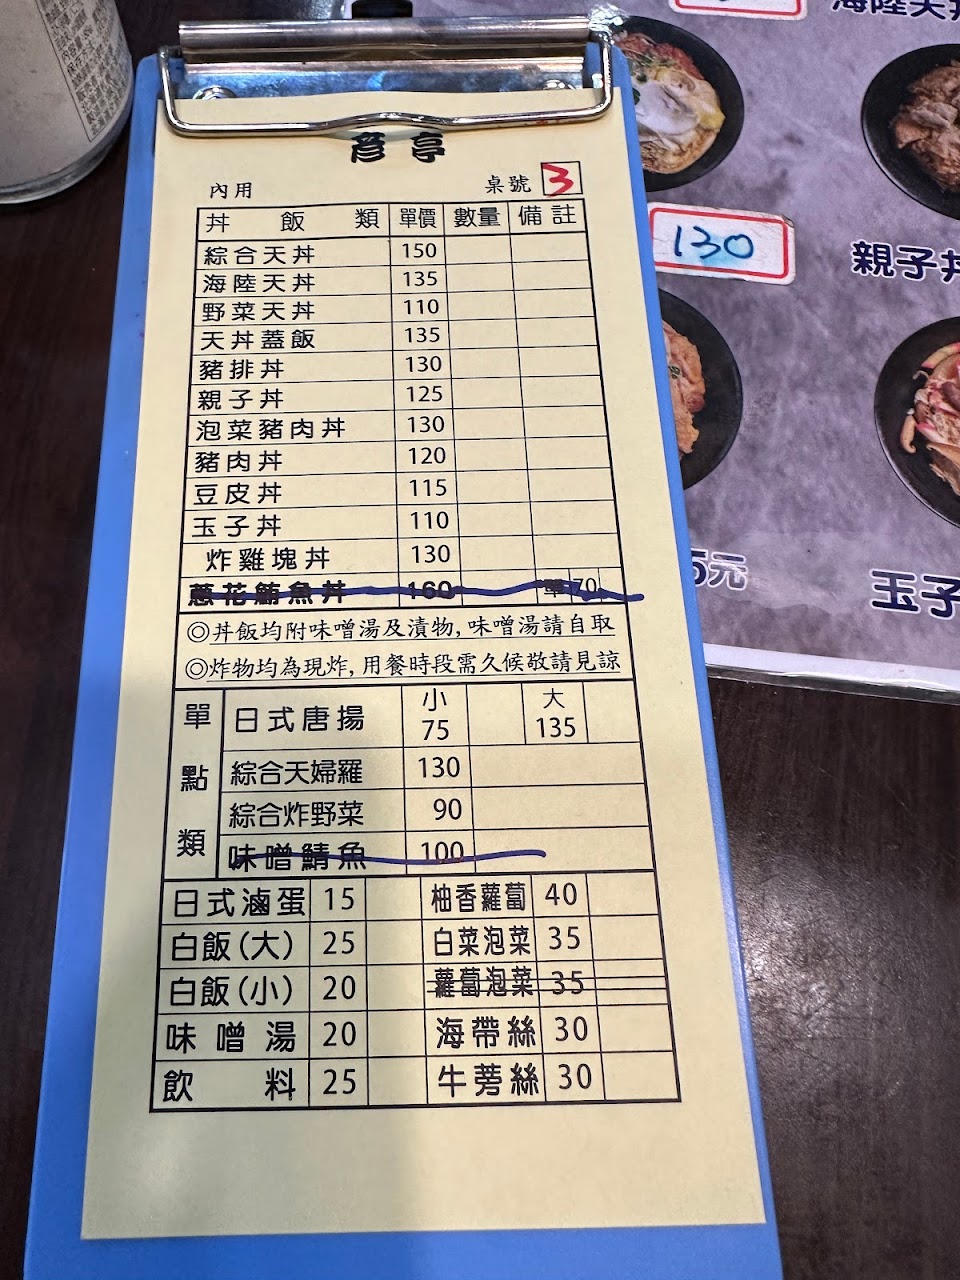 彦亭
內用 桌號 3
丼飯類 單價 數量 備註
綜合天丼 150
海陸天丼 135
野菜天丼 110
天丼蓋飯 135
豬排丼 130
親子丼 125
泡菜豬肉丼 130
豬肉丼 120
豆皮丼 115
玉子丼 110
炸雞塊丼 130
蔥花鮪魚丼 160 單 70
◎丼飯均附味噌湯及漬物,味噌湯請自取
◎炸物均為現炸,用餐時段需久候敬請見諒
單點類
日式唐揚 小 75 大 135
綜合天婦羅 130
綜合炸野菜 90
味噌鯖魚 100
日式滷蛋 15 柚香蘿蔔 40
白飯(大) 25 白菜泡菜 35
白飯(小) 20 蘿蔔泡菜 35
味噌湯 20 海帶絲 30
飲料 25 牛蒡絲 30
海陸天丼
130
親子丼
5元
玉子